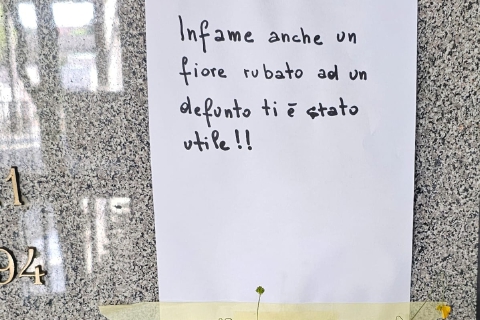 Infame anche un
fiore rubato ad un
defunto ti è stato
utile!!
1
94